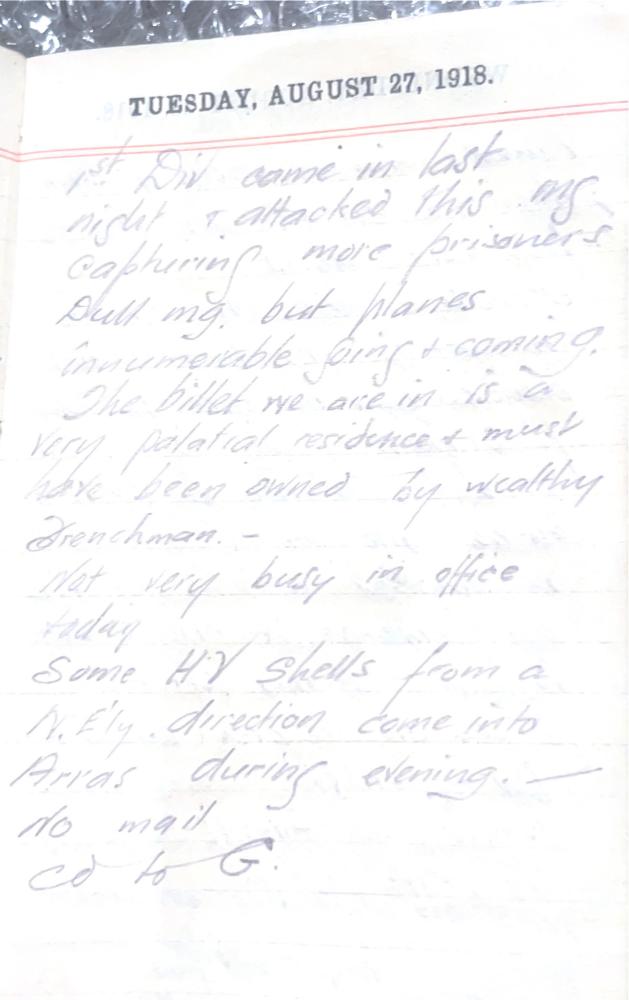 TUESDAY, AUGUST 27, 1918.
1st Div came in last
night & attacked this mg
capturing more prisoners
Dull mg. but planes
innumerable going & coming.
The billet we are in is a
very palatial residence & must
have been owned by wealthy
Frenchman. –
Not very busy in office
today
Some HV Shells from a
N.E'ly. direction come into
Arras during evening. —
No mail
cd to G.